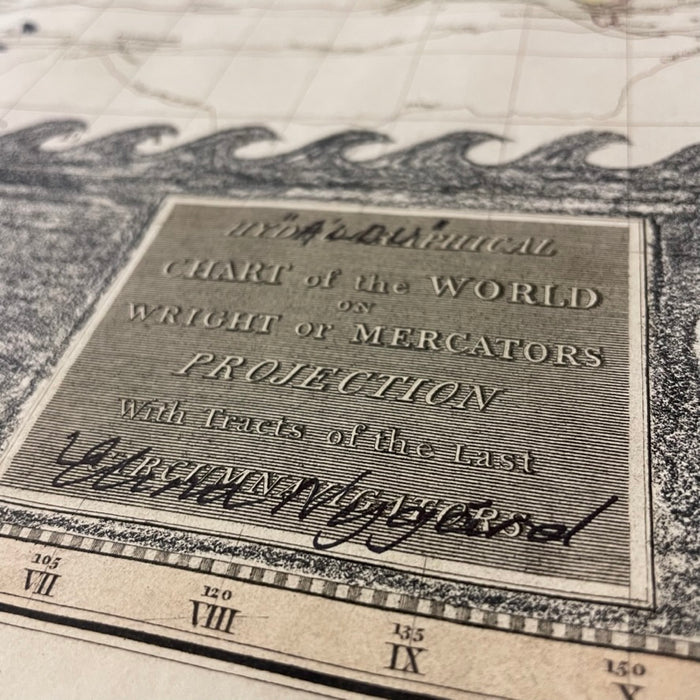 HYDROGRAPHICAL
"ALDU"
CHART of the WORLD
ON
WRIGHT or MERCATORS
PROJECTION
With Tracts of the Last
CIRCUMNAVIGATORS
Nygaard
105 120 135 150
VII VIII IX X